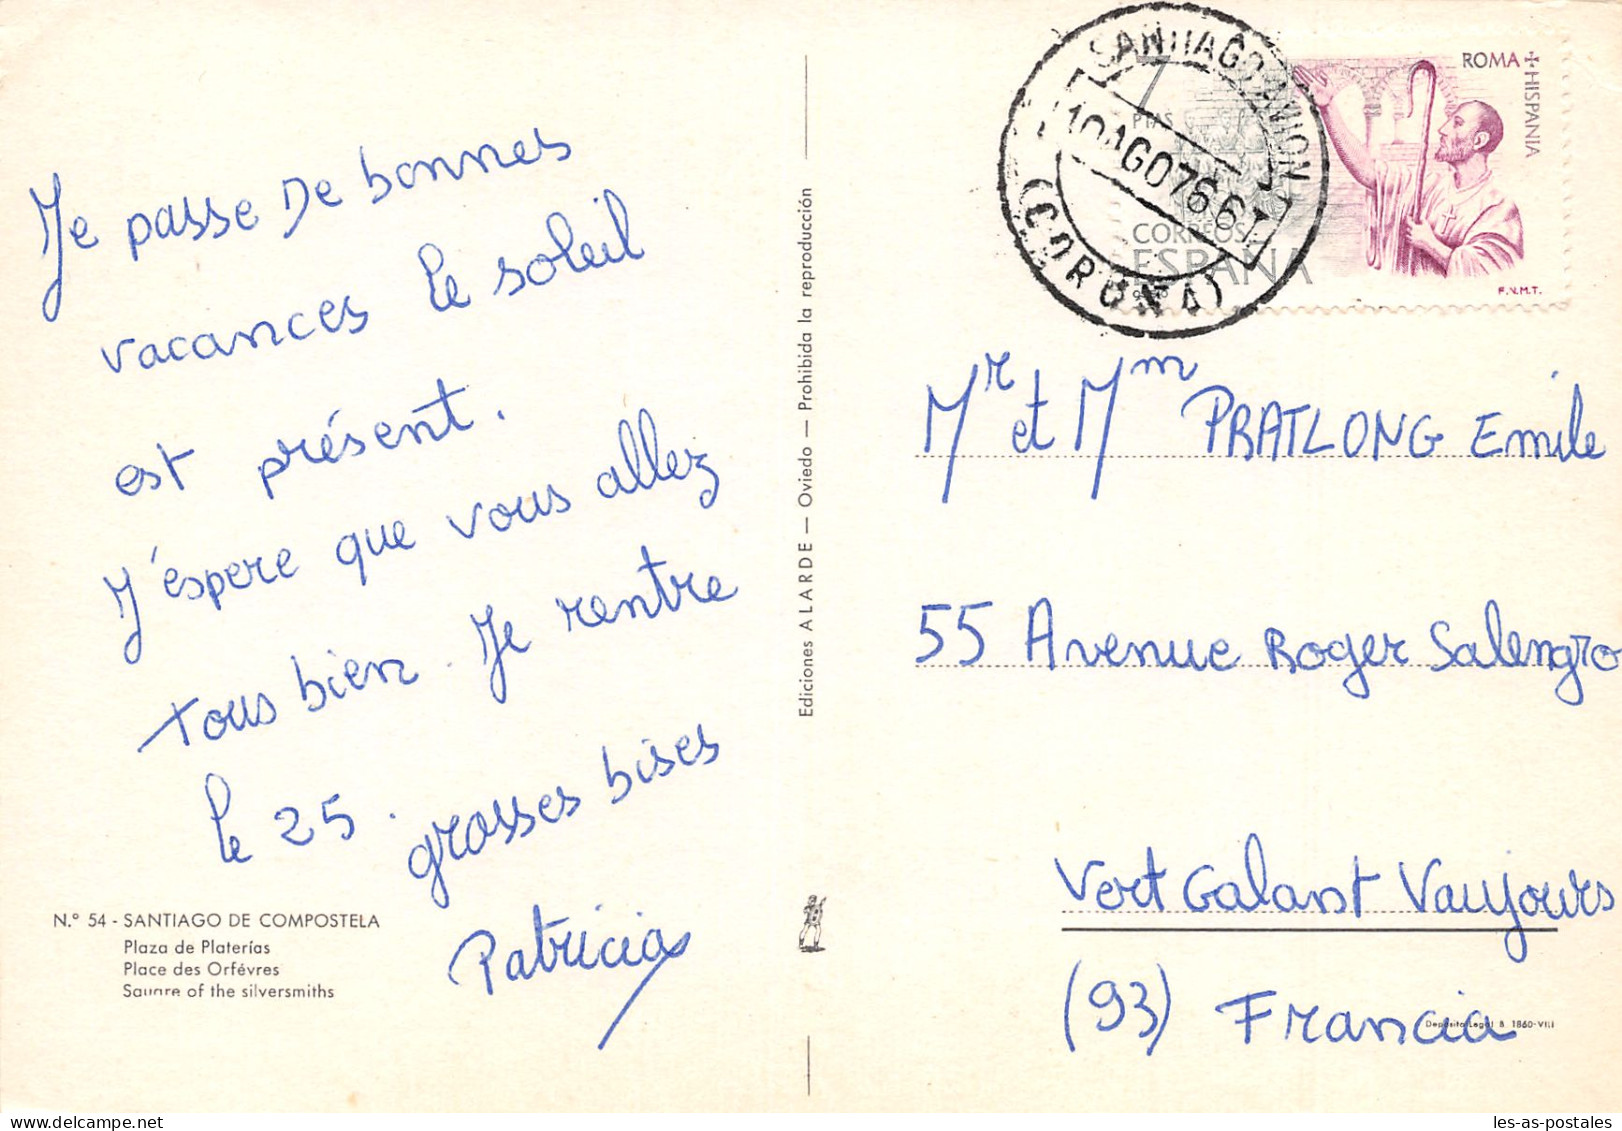 Je passe De bonnes
vacances le soleil
est présent.
J'éspere que vous allez
tous bien. Je rentre
le 25. grosses bises
Patricia
N.º 54 - SANTIAGO DE COMPOSTELA
Plaza de Platerías
Place des Orfévres
Square of the silversmiths
Ediciones ALARDE — Oviedo — Prohibida la reproducción
SANTIAGO AVION
10AGO76
(CORUÑA)
7
PTAS
CORREOS
ESPAÑA
ROMA + HISPANIA
F.N.M.T.
Mr et Mm PRATLONG Emile
55 Avenue Roger Salengro
Vert Galant Vaujours
(93) Francia
Depósito Legal B. 1860-VIII
les-as-postales